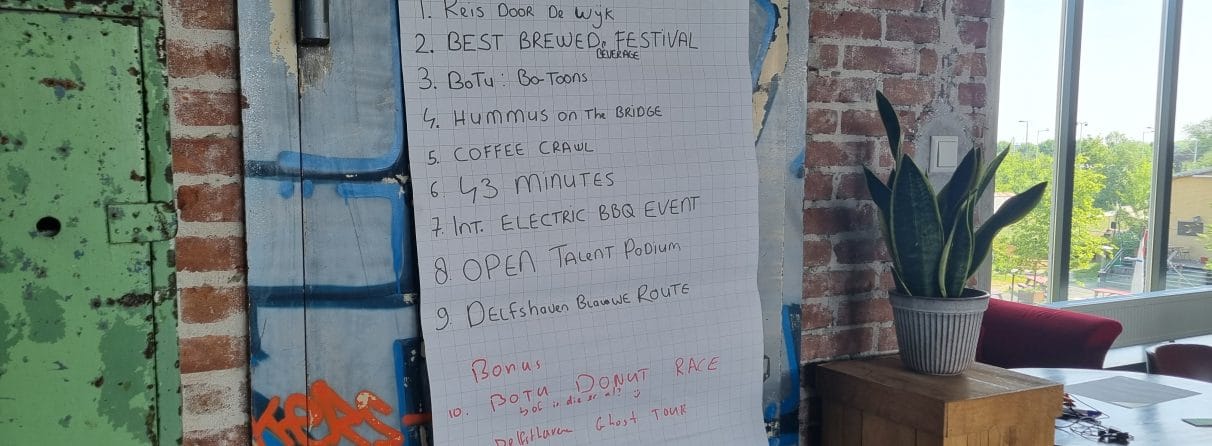 1. Reis Door De Wijk
2. BEST BREWED FESTIVAL
BEVERAGE
3. BoTu: Bo-Toons
4. Hummus on The BRIDGE
5. COFFEE CRAWL
6. 43 MINUTES
7. Int. ELECTRIC BBQ EVENT
8. OPEN Talent Podium
9. DELfshaven BlauwE ROUTE
Bonus
10. BOTU DONUT RACE
of is die er al? :)
Delfshaven Ghost TOUR